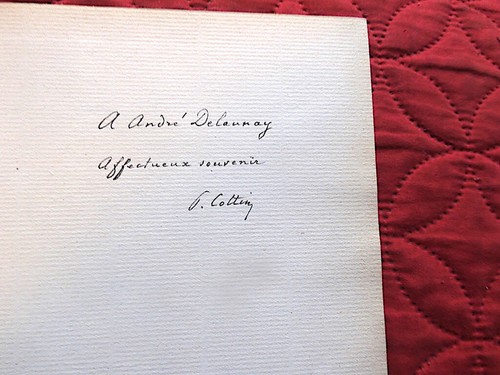 A André Delaunay
Affectueux souvenir
P. Cottin